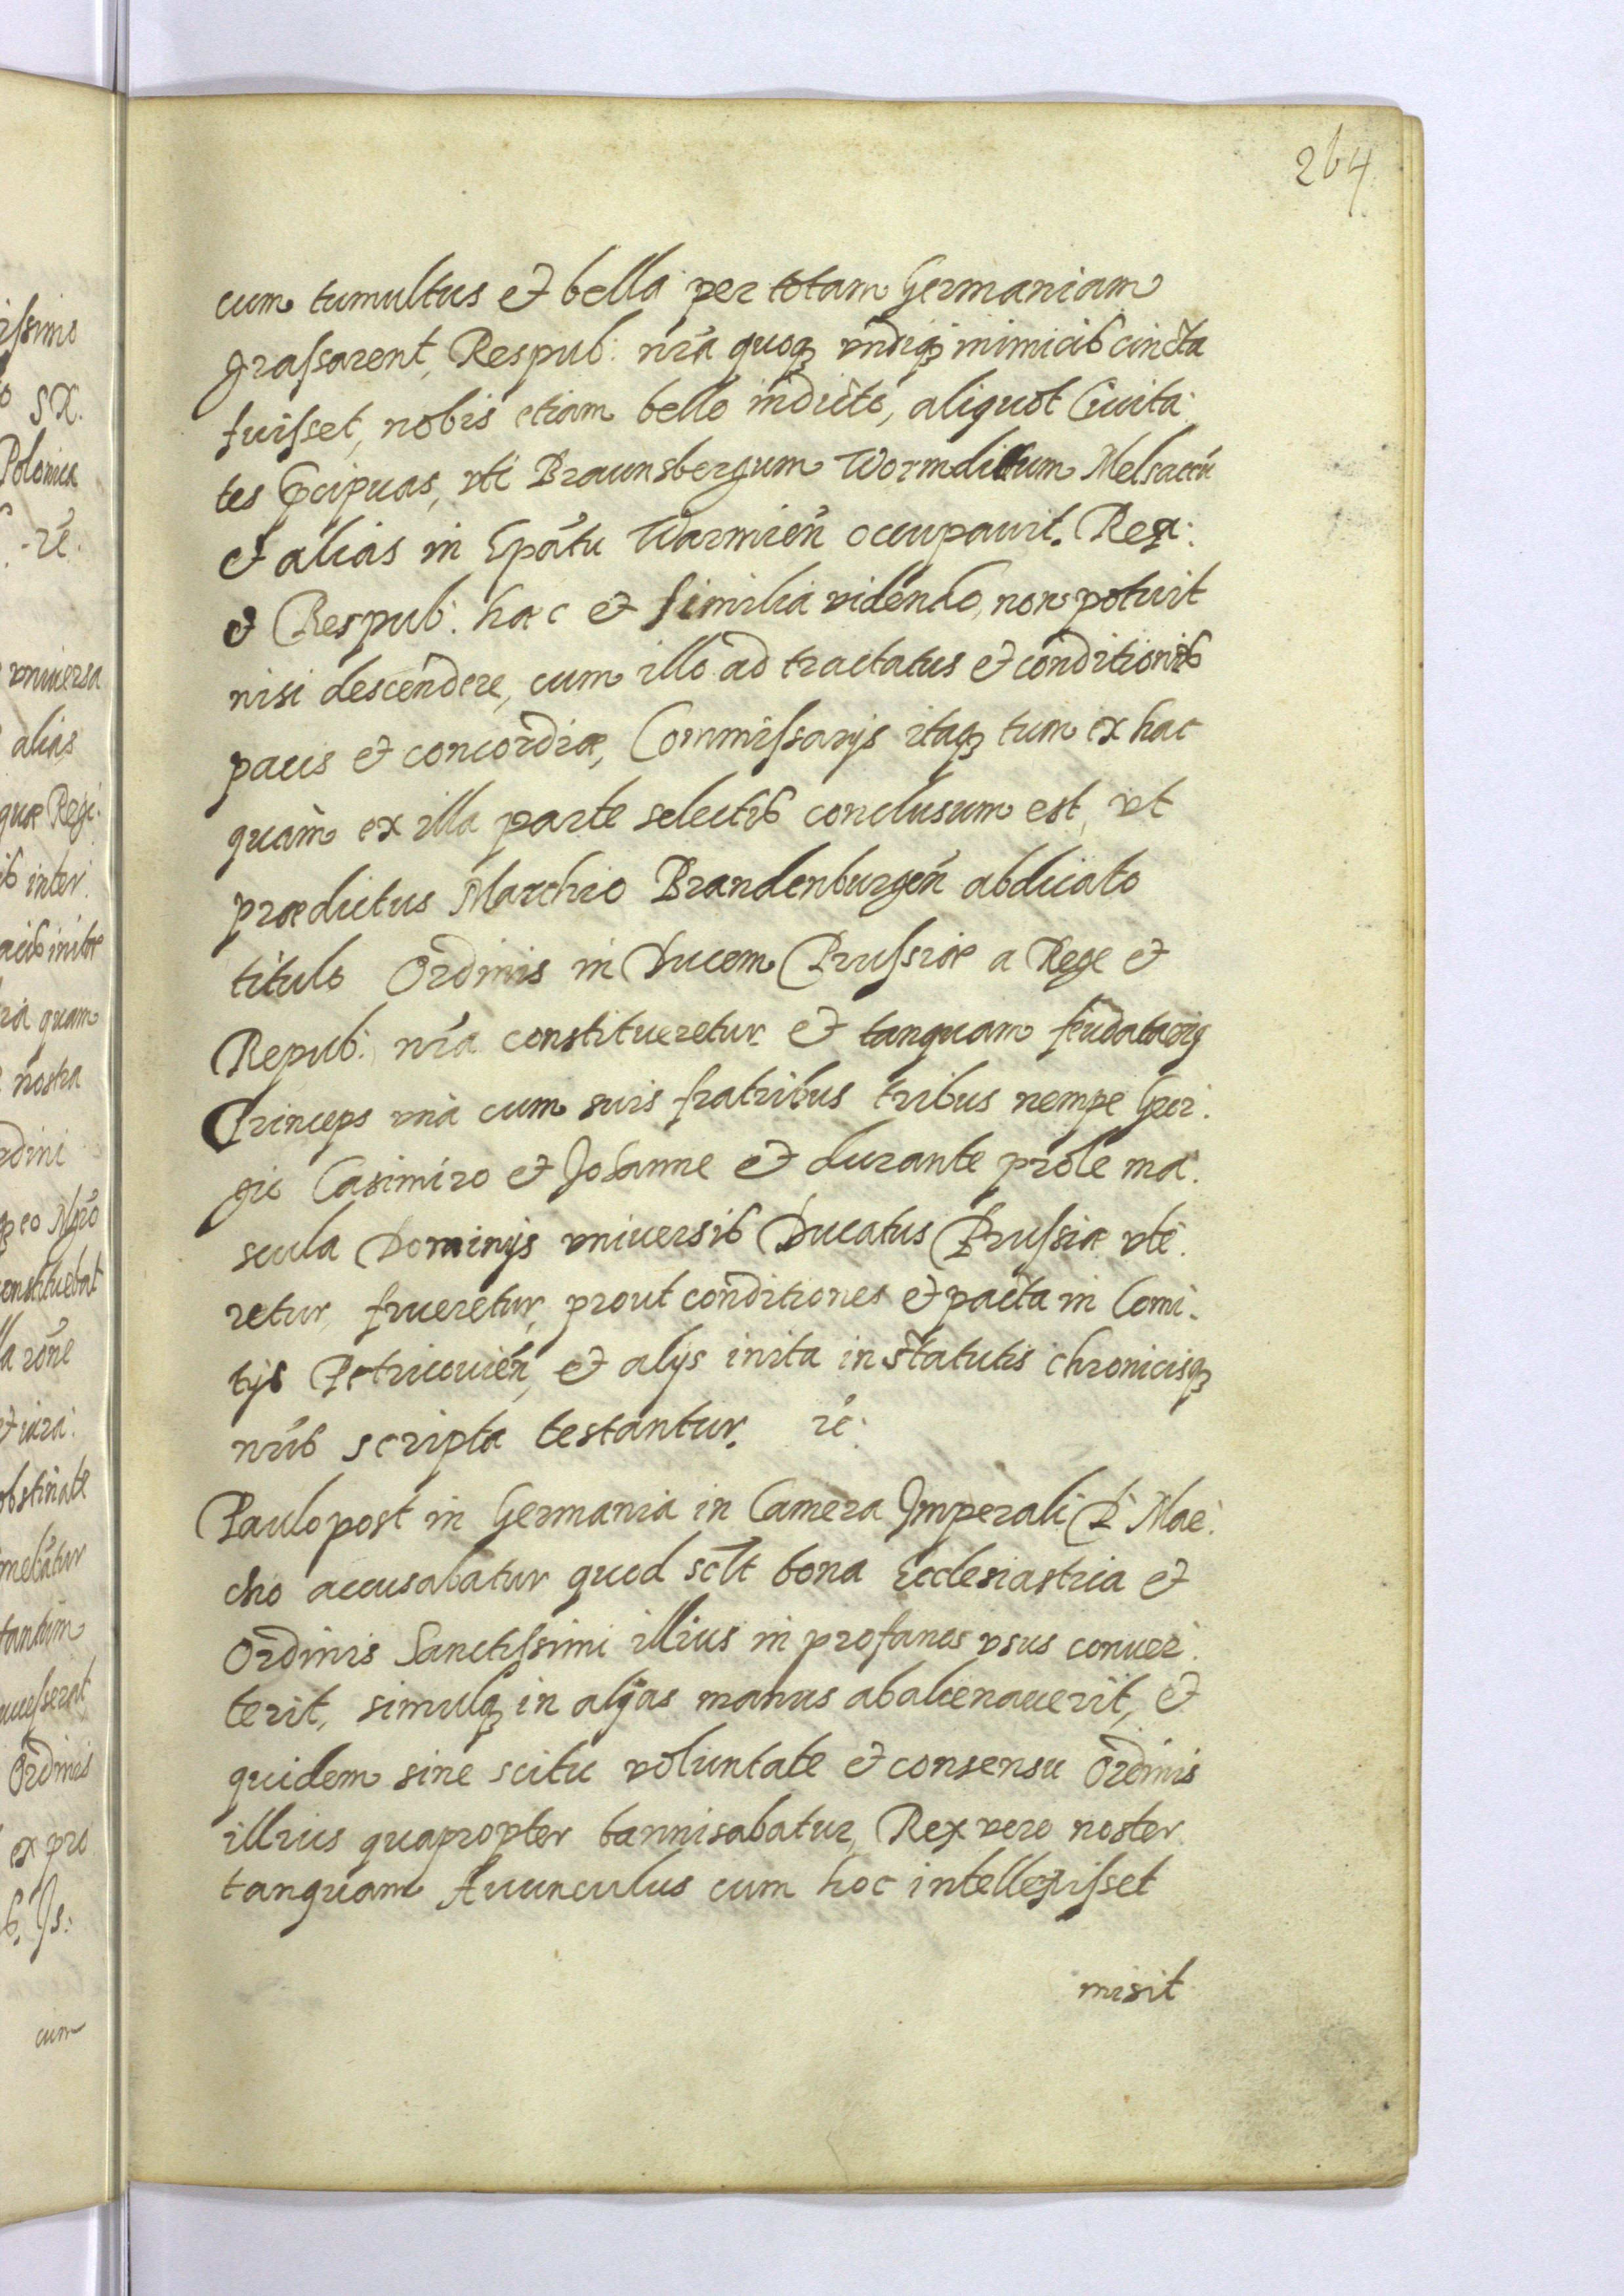 264.
cum tumultus et bella per totam Germaniam
grassarent, Respub: nr̃a quoqȝ vndiqȝ inimicib cincta
fuisset, nobis etiam bello indicto, aliquot Ciuita:
tes p̃cipuas, vti Braunsbergum Wormdittum Melsaccũ
et alias in Epãtu Warmieñ occupauit. Rex:
et Respub: hac et similia videndo, non potuit
nisi descendere, cum illo ad tractatus et conditionib
pacis et concordiæ, Commissarijs itaqȝ tum ex hac
quàm ex illa parte selectib conclusum est, vt
prædictus Marchio Brandenburgeñ abdicato
titulo Ordinis in Ducem Prussiæ a Rege et
Repub: nr̃a constitueretur et tanquam feudatariꝯ
Princeps vnà cum suis fratribus tribus nempe Geor:
gio Casimiro et Johanne et durante prole ma:
scula Dominijs vniuersib Ducatus Prussiæ vte:
retur, frueretur, prout conditiones et pacta in Comi:
tijs Petricouieñ, et alijs inita in statutis chronicisqȝ
nr̃ib scripta testantur. rẽ:
Paulo post in Germania in Camera Imperali D: Mar:
chio accusabatur quod sclt bona Ecclesiastica et
Ordinis Sanctissimi illius in profanos vsus conuer:
terit, simulqȝ in alijas manus abalienauerit, et
quidem sine scitu voluntate et consensu Ordinis
illius quapropter bannisabatur, Rex vero noster
tanquam Auunculus cum hoc intellexisset
misit
issimo
SR.
Polonica
rẽ:
vniuersa
alias
quæ Regi:
ib inter.
quam
nostra
rdini
eo Mgr̃o
constituebat
rõne
et iura:
obstinate
tantum
Ordinis
ex pro
Is:
cum